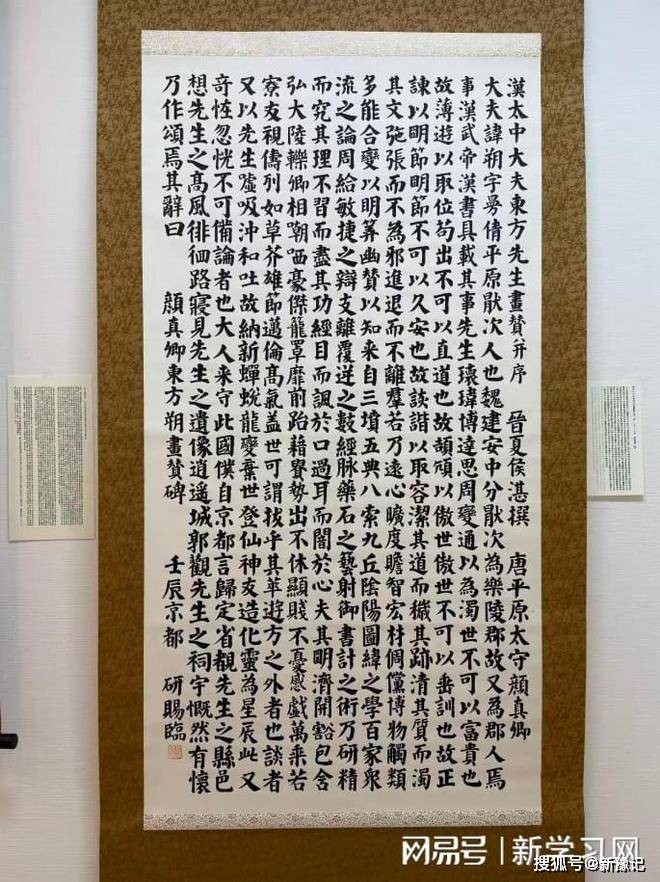 漢太中大夫東方先生畫贊并序 晉夏侯湛撰 唐平原太守顏真卿
大夫諱朔字曼倩平原猒次人也魏建安中分猒次為樂陵郡故又為郡人焉
事漢武帝漢書具載其事先生瓌瑋博達思周變通以為濁世不可以富貴也
故薄遊以取位苟出不可以直道也故頡頏以傲世傲世不可以垂訓也故正
諫以明節明節不可以久安也故詼諧以取容潔其道而穢其跡清其質而濁
其文弛張而不為邪進退而不離羣若乃遠心曠度贍智宏材倜儻博物觸類
多能合變以明筭幽贊以知来自三墳五典八索九丘陰陽圖緯之學百家衆
流之論周給敏捷之辯支離覆逆之數經脉藥石之藝射御書計之術乃研精
而究其理不習而盡其功經目而諷於口過耳而闇於心夫其明濟開豁包含
弘大陵轢卿相嘲哂豪傑籠罩靡前跆藉貴勢出不休顯賤不憂慼戲萬乘若
寮友視儔列如草芥雄節邁倫高氣盖世可謂拔乎其萃遊方之外者也談者
又以先生嘘吸沖和吐故納新蟬蛻龍變棄世登仙神友造化靈為星辰此又
奇恠忽恍不可備論者也大人来守此國僕自京都言歸定省覩先生之縣邑
想先生之高風徘徊路寢見先生之遺像逍遥城郭觀先生之祠宇慨然有懷
乃作頌焉其辭曰 顏真卿東方朔畫贊碑 壬辰京都 研賜臨
网易号 | 新学习网
搜狐号@新豫记